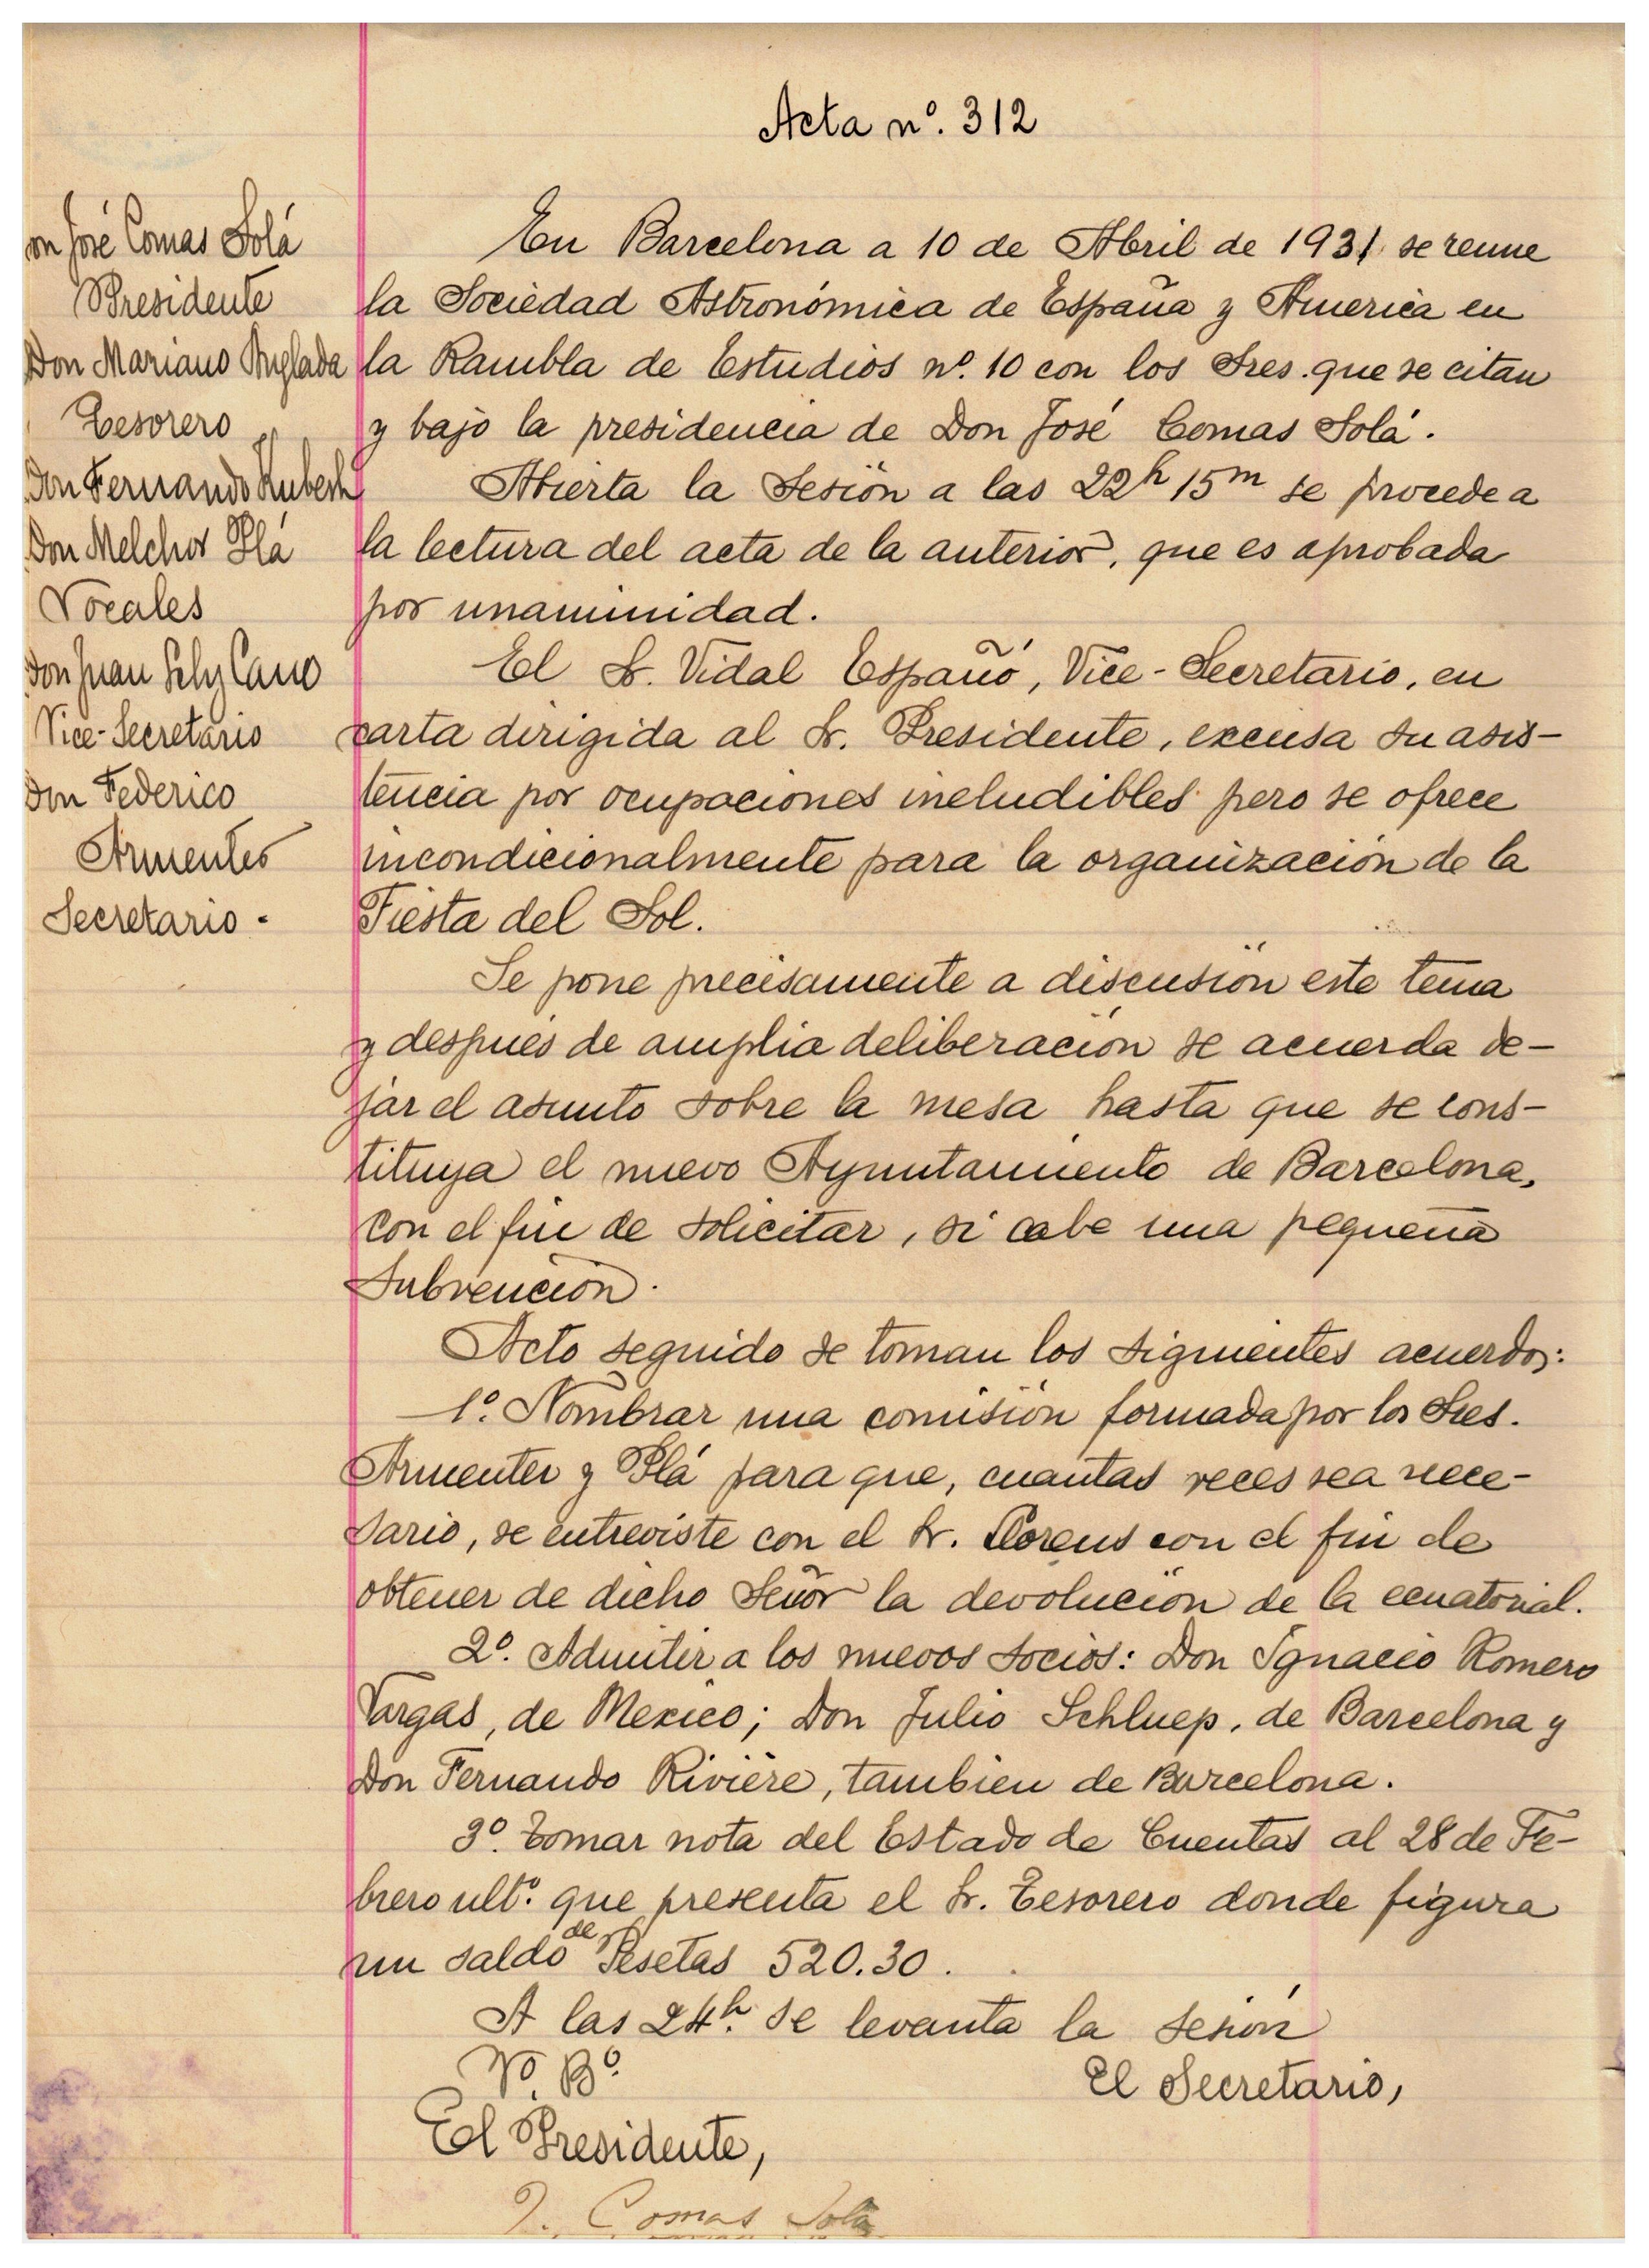 Acta nº. 312
on José Comas Solá
Presidente
Don Mariano Anglada
Tesorero
Don Fernando
Don Melchor Plá
Vocales
Don Juan Cano
Vice-Secretario
Don Federico
Armenter
Secretario.
En Barcelona a 10 de Abril de 1931 se reune
la Sociedad Astronómica de España y America en
la Rambla de Estudios nº. 10 con los Sres. que se citan
y bajo la presidencia de Don José Comas Solá.
Abierta la Sesión a las 22h 15m se procede a
la lectura del acta de la anterior, que es aprobada
por unaminidad.
El Sr. Vidal Españó, Vice-Secretario, en
carta dirigida al Sr. Presidente, excusa su asis-
tencia por ocupaciones ineludibles pero se ofrece
incondicionalmente para la organización de la
Fiesta del Sol.
Se pone precisamente a discusión este tema
y después de amplia deliberación se acuerda de-
jar el asunto sobre la mesa hasta que se cons-
tituya el nuevo Ayuntamiento de Barcelona,
con el fin de solicitar, si cabe una pequeña
subvención.
Acto seguido se toman los siguientes acuerdos:
1º. Nombrar una comisión formada por los Sres.
Armenter y Plá para que, cuantas veces sea nece-
sario, se entreviste con el Sr. Llorens con el fin de
obtener de dicho Señor la devolución de la ecuatorial.
2º. Admitir a los nuevos socios: Don Ignacio Romero
Vargas, de Mexico; Don Julio Schluep, de Barcelona y
Don Fernando Rivière, tambien de Barcelona.
3º. Tomar nota del Estado de Cuentas al 28 de Fe-
brero ultº. que presenta el Sr. Tesorero donde figura
un saldo de Pesetas 520.30.
A las 24h. se levanta la sesión
Vº. Bº.
El Secretario,
El Presidente,
J. Comas Solá